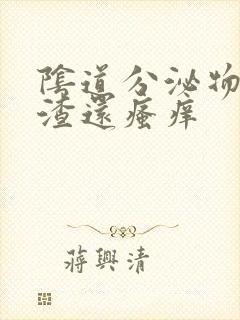 陰道分泌物
渣還瘙痒
蔣興清